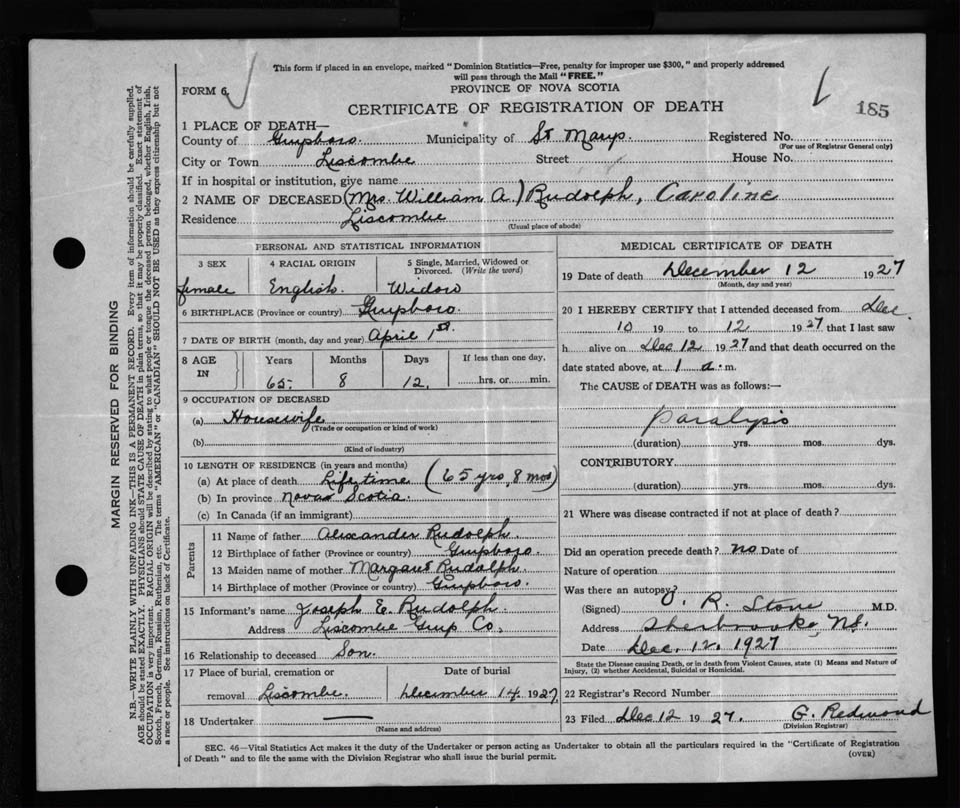 This form if placed in an envelope, marked " Dominion Statistics—Free, penalty for improper use $300, " and properly addressed
will pass through the Mail "FREE."
FORM 6
PROVINCE OF NOVA SCOTIA
CERTIFICATE OF REGISTRATION OF DEATH
185
1 PLACE OF DEATH—
County of Guysboro. Municipality of St Marys. Registered No.
(For use of Registrar General only)
City or Town Liscombe Street House No.
If in hospital or institution, give name
2 NAME OF DECEASED (Mrs. William A.) Rudolph, Caroline
Residence Liscombe
(Usual place of abode)
PERSONAL AND STATISTICAL INFORMATION
3 SEX 4 RACIAL ORIGIN 5 Single, Married, Widowed or Divorced. (Write the word)
female English. Widow
6 BIRTHPLACE (Province or country) Guysboro
7 DATE OF BIRTH (month, day and year) April 1st.
8 AGE IN Years Months Days If less than one day,
65. 8 12. hrs. or min.
9 OCCUPATION OF DECEASED
(a) Housewife
(Trade or occupation or kind of work)
(b)
(Kind of industry)
10 LENGTH OF RESIDENCE (in years and months)
(a) At place of death Lifetime (65 yrs, 8 mos)
(b) In province Nova Scotia.
(c) In Canada (if an immigrant)
Parents
11 Name of father Alexander Rudolph.
12 Birthplace of father (Province or country) Guysboro.
13 Maiden name of mother Margaret Rudolph
14 Birthplace of mother (Province or country) Guysboro.
15 Informant's name Joseph E. Rudolph
Address Liscombe Guys Co,
16 Relationship to deceased Son.
17 Place of burial, cremation or Date of burial
removal Liscombe. December 14, 1927,
18 Undertaker
(Name and address)
MEDICAL CERTIFICATE OF DEATH
19 Date of death December 12 1927
(Month, day and year)
20 I HEREBY CERTIFY that I attended deceased from Dec.
10 19 to 12 1927 that I last saw
h alive on Dec 12 1927 and that death occurred on the
date stated above, at 1 a. m.
The CAUSE OF DEATH was as follows:—
Paralysis
(duration) yrs. mos. dys.
CONTRIBUTORY
(duration) yrs. mos. dys.
21 Where was disease contracted if not at place of death?
Did an operation precede death? no Date of
Nature of operation
Was there an autopsy?
(Signed) J. R. Stone M.D.
Address Sherbrooke, N.S.
Date Dec. 12, 1927
State the Disease causing Death, or in death from Violent Causes, state (1) Means and Nature of
Injury, (2) whether Accidental, Suicidal or Homicidal.
22 Registrar's Record Number
23 Filed Dec 12 1927. G. Redmond
(Division Registrar)
SEC. 46—Vital Statistics Act makes it the duty of the Undertaker or person acting as Undertaker to obtain all the particulars required in the "Certificate of Registration
of Death" and to file the same with the Division Registrar who shall issue the burial permit.
(OVER)
MARGIN RESERVED FOR BINDING
N.B.—WRITE PLAINLY WITH UNFADING INK—THIS IS A PERMANENT RECORD. Every item of information should be carefully supplied.
AGE should be stated EXACTLY. PHYSICIANS should STATE CAUSE OF DEATH in plain terms, so that it may be properly classified. Exact statement of
OCCUPATION is very important. RACIAL ORIGIN will be described by stating to what people or tongue the deceased person belonged, whether English, Irish,
Scotch, French, German, Russian, Ruthenian, etc. The terms "AMERICAN" or "CANADIAN" SHOULD NOT BE USED as they express citizenship but not
a race or people. See instructions on back of Certificate.